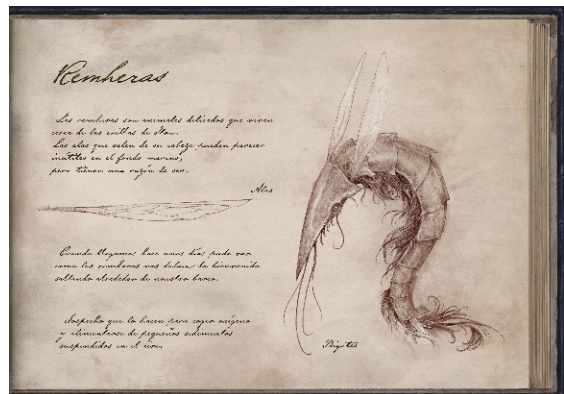 Remheras
Las remheras son animales delicados que viven
cerca de las orillas de
Las alas que salen de su cabeza pueden parecer
inútiles en el fondo marino,
pero tienen una razón de ser.
Alas
Cuando llegamos hace unos días, pude ver
como las remheras nos daban la bienvenida
saltando alrededor de nuestro barco.
Sospecho que lo hacen para coger oxígeno
y alimentarse de pequeños sedimentos
suspendidos en el aire.
Bigotes